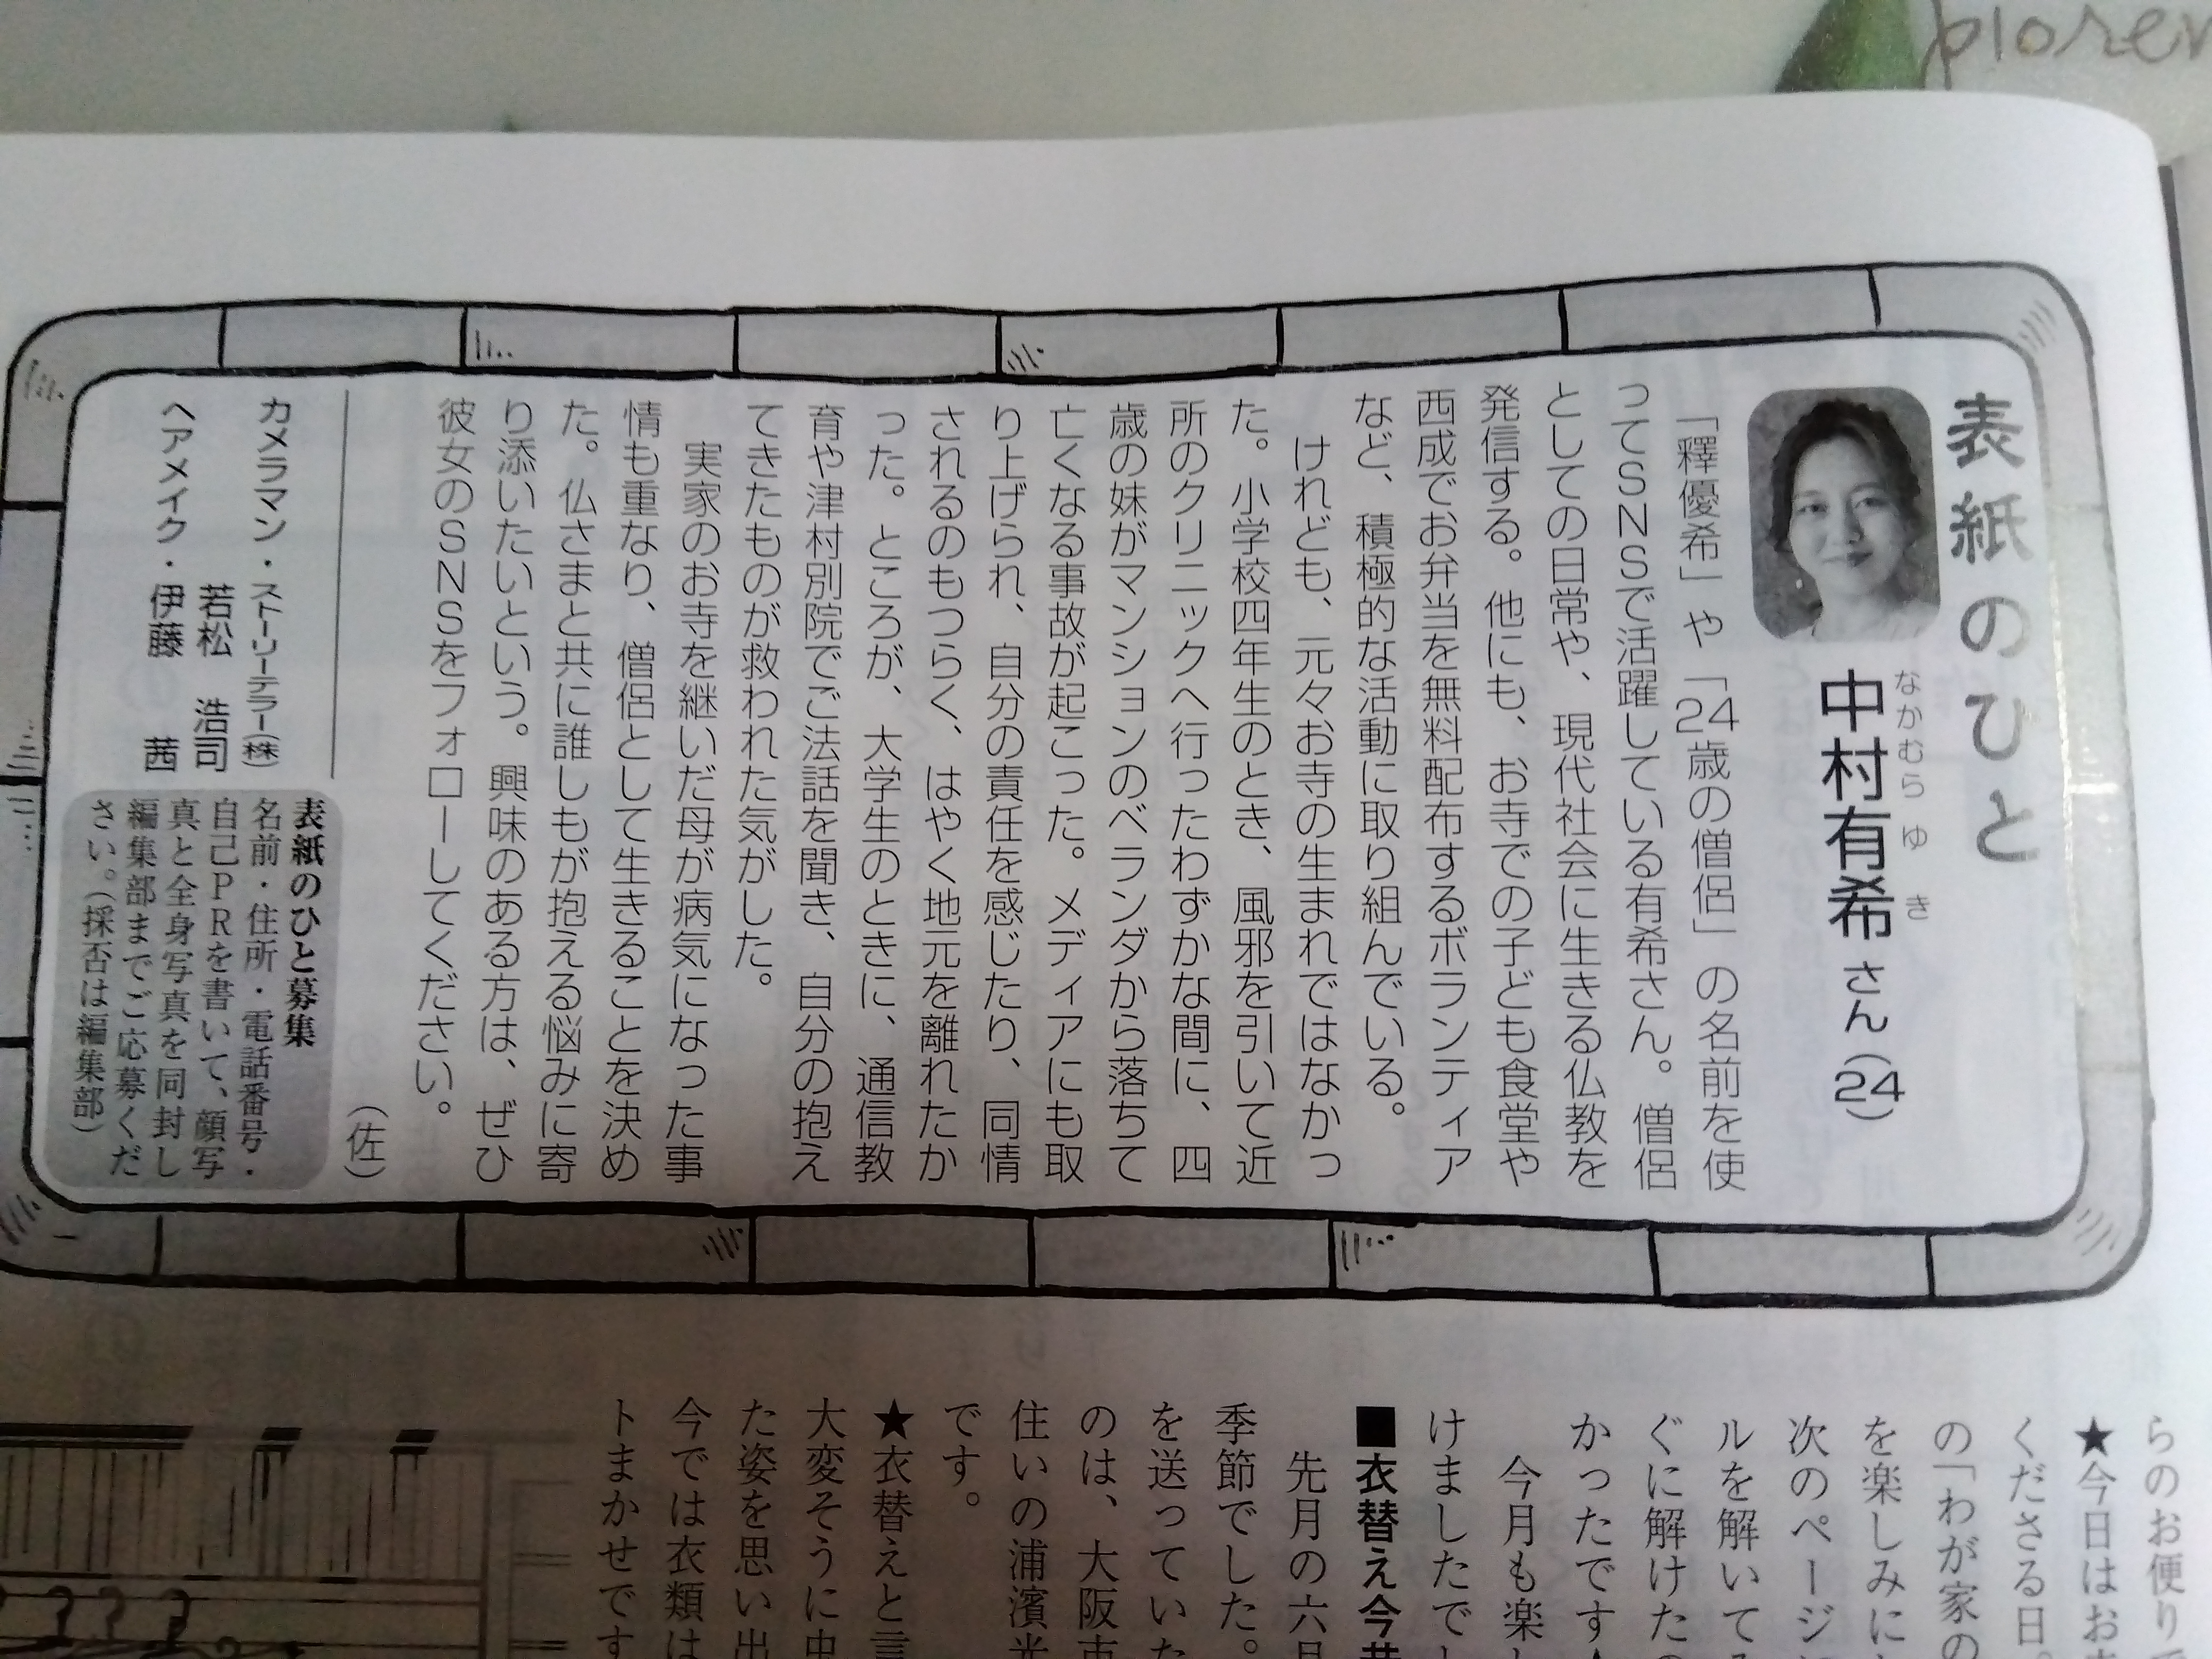 plorer
表紙のひと
なかむら ゆき
中村有希さん(24)
「釋優希」や「24歳の僧侶」の名前を使
ってSNSで活躍している有希さん。僧侶
としての日常や、現代社会に生きる仏教を
発信する。他にも、お寺での子ども食堂や
西成でお弁当を無料配布するボランティア
など、積極的な活動に取り組んでいる。
けれども、元々お寺の生まれではなかっ
た。小学校四年生のとき、風邪を引いて近
所のクリニックへ行ったわずかな間に、四
歳の妹がマンションのベランダから落ちて
亡くなる事故が起こった。メディアにも取
り上げられ、自分の責任を感じたり、同情
されるのもつらく、はやく地元を離れたか
った。ところが、大学生のときに、通信教
育や津村別院でご法話を聞き、自分の抱え
てきたものが救われた気がした。
実家のお寺を継いだ母が病気になった事
情も重なり、僧侶として生きることを決め
た。仏さまと共に誰しもが抱える悩みに寄
り添いたいという。興味のある方は、ぜひ
彼女のSNSをフォローしてください。
(佐)
カメラマン・ストーリーテラー(株)
若松 浩司
ヘアメイク・伊藤 茜
表紙のひと募集
名前・住所・電話番号・
自己PRを書いて、顔写
真と全身写真を同封し
編集部までご応募くだ
さい。(採否は編集部)
らのお便りで
★今日はお
くださる日。
の「わが家の
を楽しみに
次のページ
ルを解いて
ぐに解けた
かったです
今月も楽
けましたで
■衣替え今昔
先月の六月
季節でした。
を送っていた
のは、大阪市
住いの浦濱光
です。
★衣替えと言
大変そうに中
た姿を思い出
今では衣類は
トまかせです